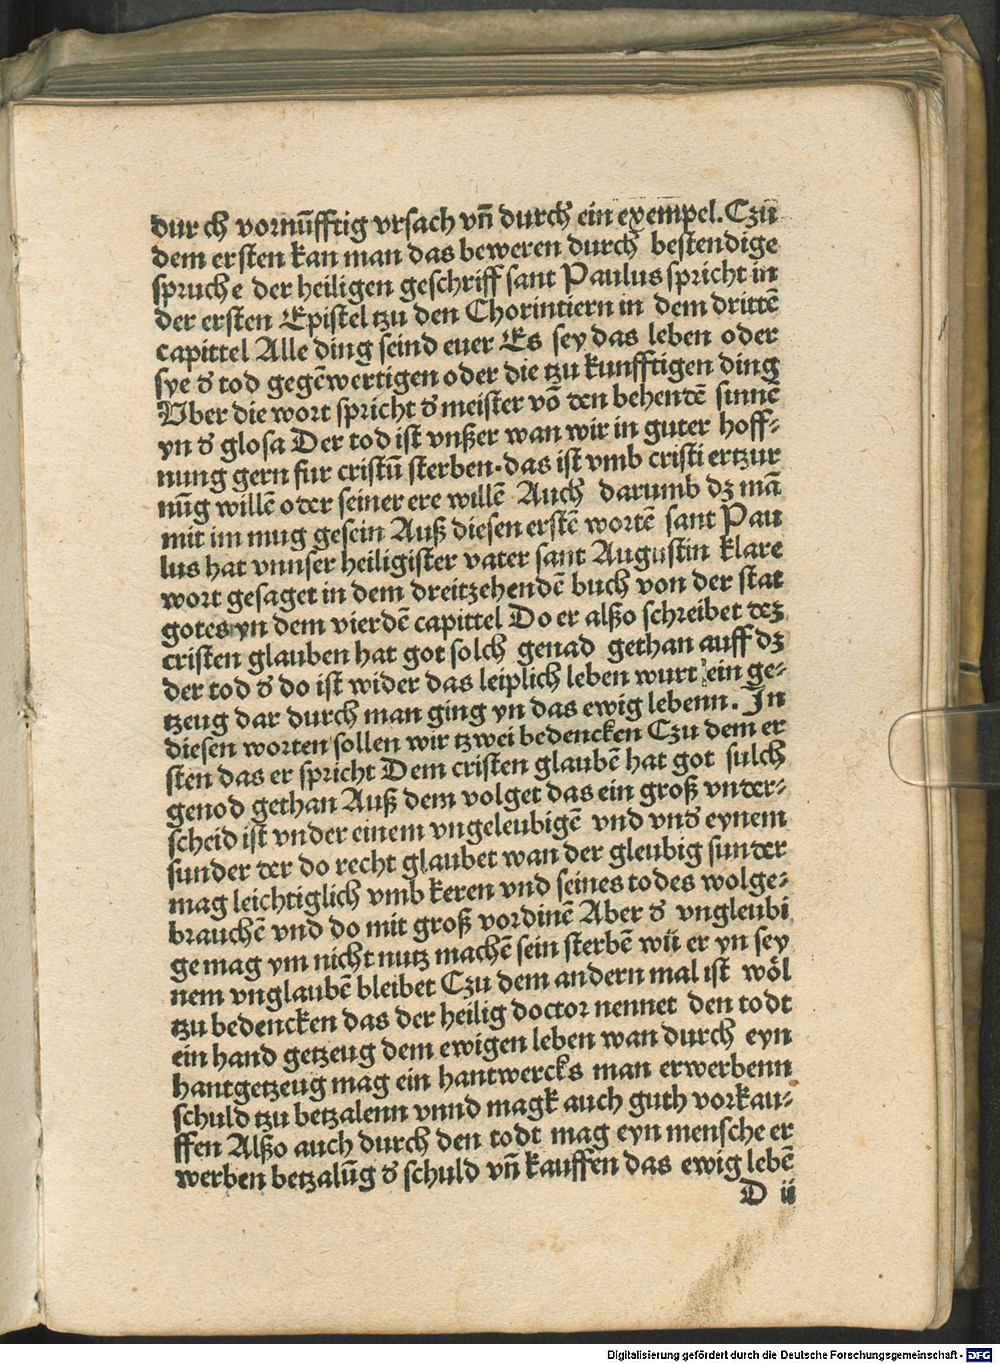 dur ch vornūfftig vrsach vn̄ durch ein exempel. Czū
dem ersten kan man das beweren durch bestendige
spruche der heiligen geschriff sant Paulus spricht in
der ersten Epistel tzu den Chorintiern in dem drittē
capittel Alle ding seind euer Es sey das leben oder
sye d̕ tod gegēwertigen oder die tzu kunfftigen ding
Vber die wort spricht d̕ meister vō den behendē sinnē
yn d̕ glosa Der tod ist vnßer wan wir in guter hoff⸗
nung gern fur cristū sterben. das ist vmb cristi ertzur
nūg willē oder seiner ere willē Auch darumb dz mā
mit im mug gesein Auß diesen erstē wortē sant Pau
lus hat vnnser heiligister vater sant Augustin klare
wort gesaget in dem dreitzehendē buch von der stat
gotes yn dem vierdē capittel Do er alßo schreibet dez
cristen glauben hat got solch genad gethan auff dz
der tod d̕ do ist wider das leiplich leben wurt ein ge⸗
tzeug dar durch man ging yn das ewig lebenn. In
diesen worten sollen wir tzwei bedencken Czu dem er
sten das er spricht Dem cristen glaubē hat got sulch
genod gethan Auß dem volget das ein groß vnder⸗
scheid ist vnder einem vngeleubigē vnd vnd̕ eynem
sunder der do recht glaubet wan der gleubig sunder
mag leichtiglich vmb keren vnd seines todes wolge⸗
brauchē vnd do mit groß vordinē Aber d̕ vngleubi
ge mag ym nicht nutz machē sein sterbē wü er yn sey
nem vnglaubē bleibet Czu dem andern mal ist wöl
tzu bedencken das der heilig doctor nennet den todt
ein hand getzeug dem ewigen leben wan durch eyn
hantgetzeug mag ein hantwercks man erwerbenn
schuld tzu betzalenn vnnd magk auch guth vorkau⸗
ffen Alßo auch durch den todt mag eyn mensche er
werben betzalūg d̕ schuld vn̄ kauffen das ewig lebē
D ii
Digitalisierung gefördert durch die Deutsche Forschungsgemeinschaft - DFG